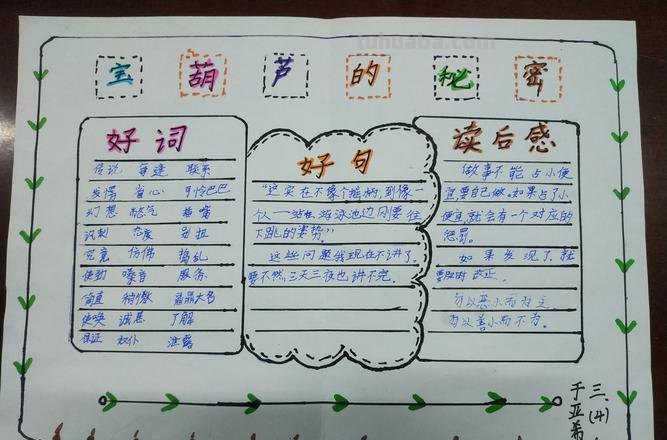 tuhuaba.com
宝葫芦的秘密
好词
传说 每逢 联系
发愣 省心 可怜巴巴
幻想 憋气 插嘴
识别 态度 别扭
究竟 仿佛 捣乱
使劲 嗓音 服务
简直 骄傲 鼎鼎大名
使唤 诚恳 了解
保证 奴仆 泄露
好句
“这实在不像个摇树,到像一
个人——站在游泳池边刚要往
下跳的姿势”
这些问题我现在不讲了。
要不然,三天三夜也讲不完。
读后感
做事不能占小便
宜,要自己做。如果占了小
便宜,就会有一个对应的
惩罚。
如果发现了,就
要及时改正。
勿以恶小而为之
勿以善小而不为。
三、(4)
于亚希